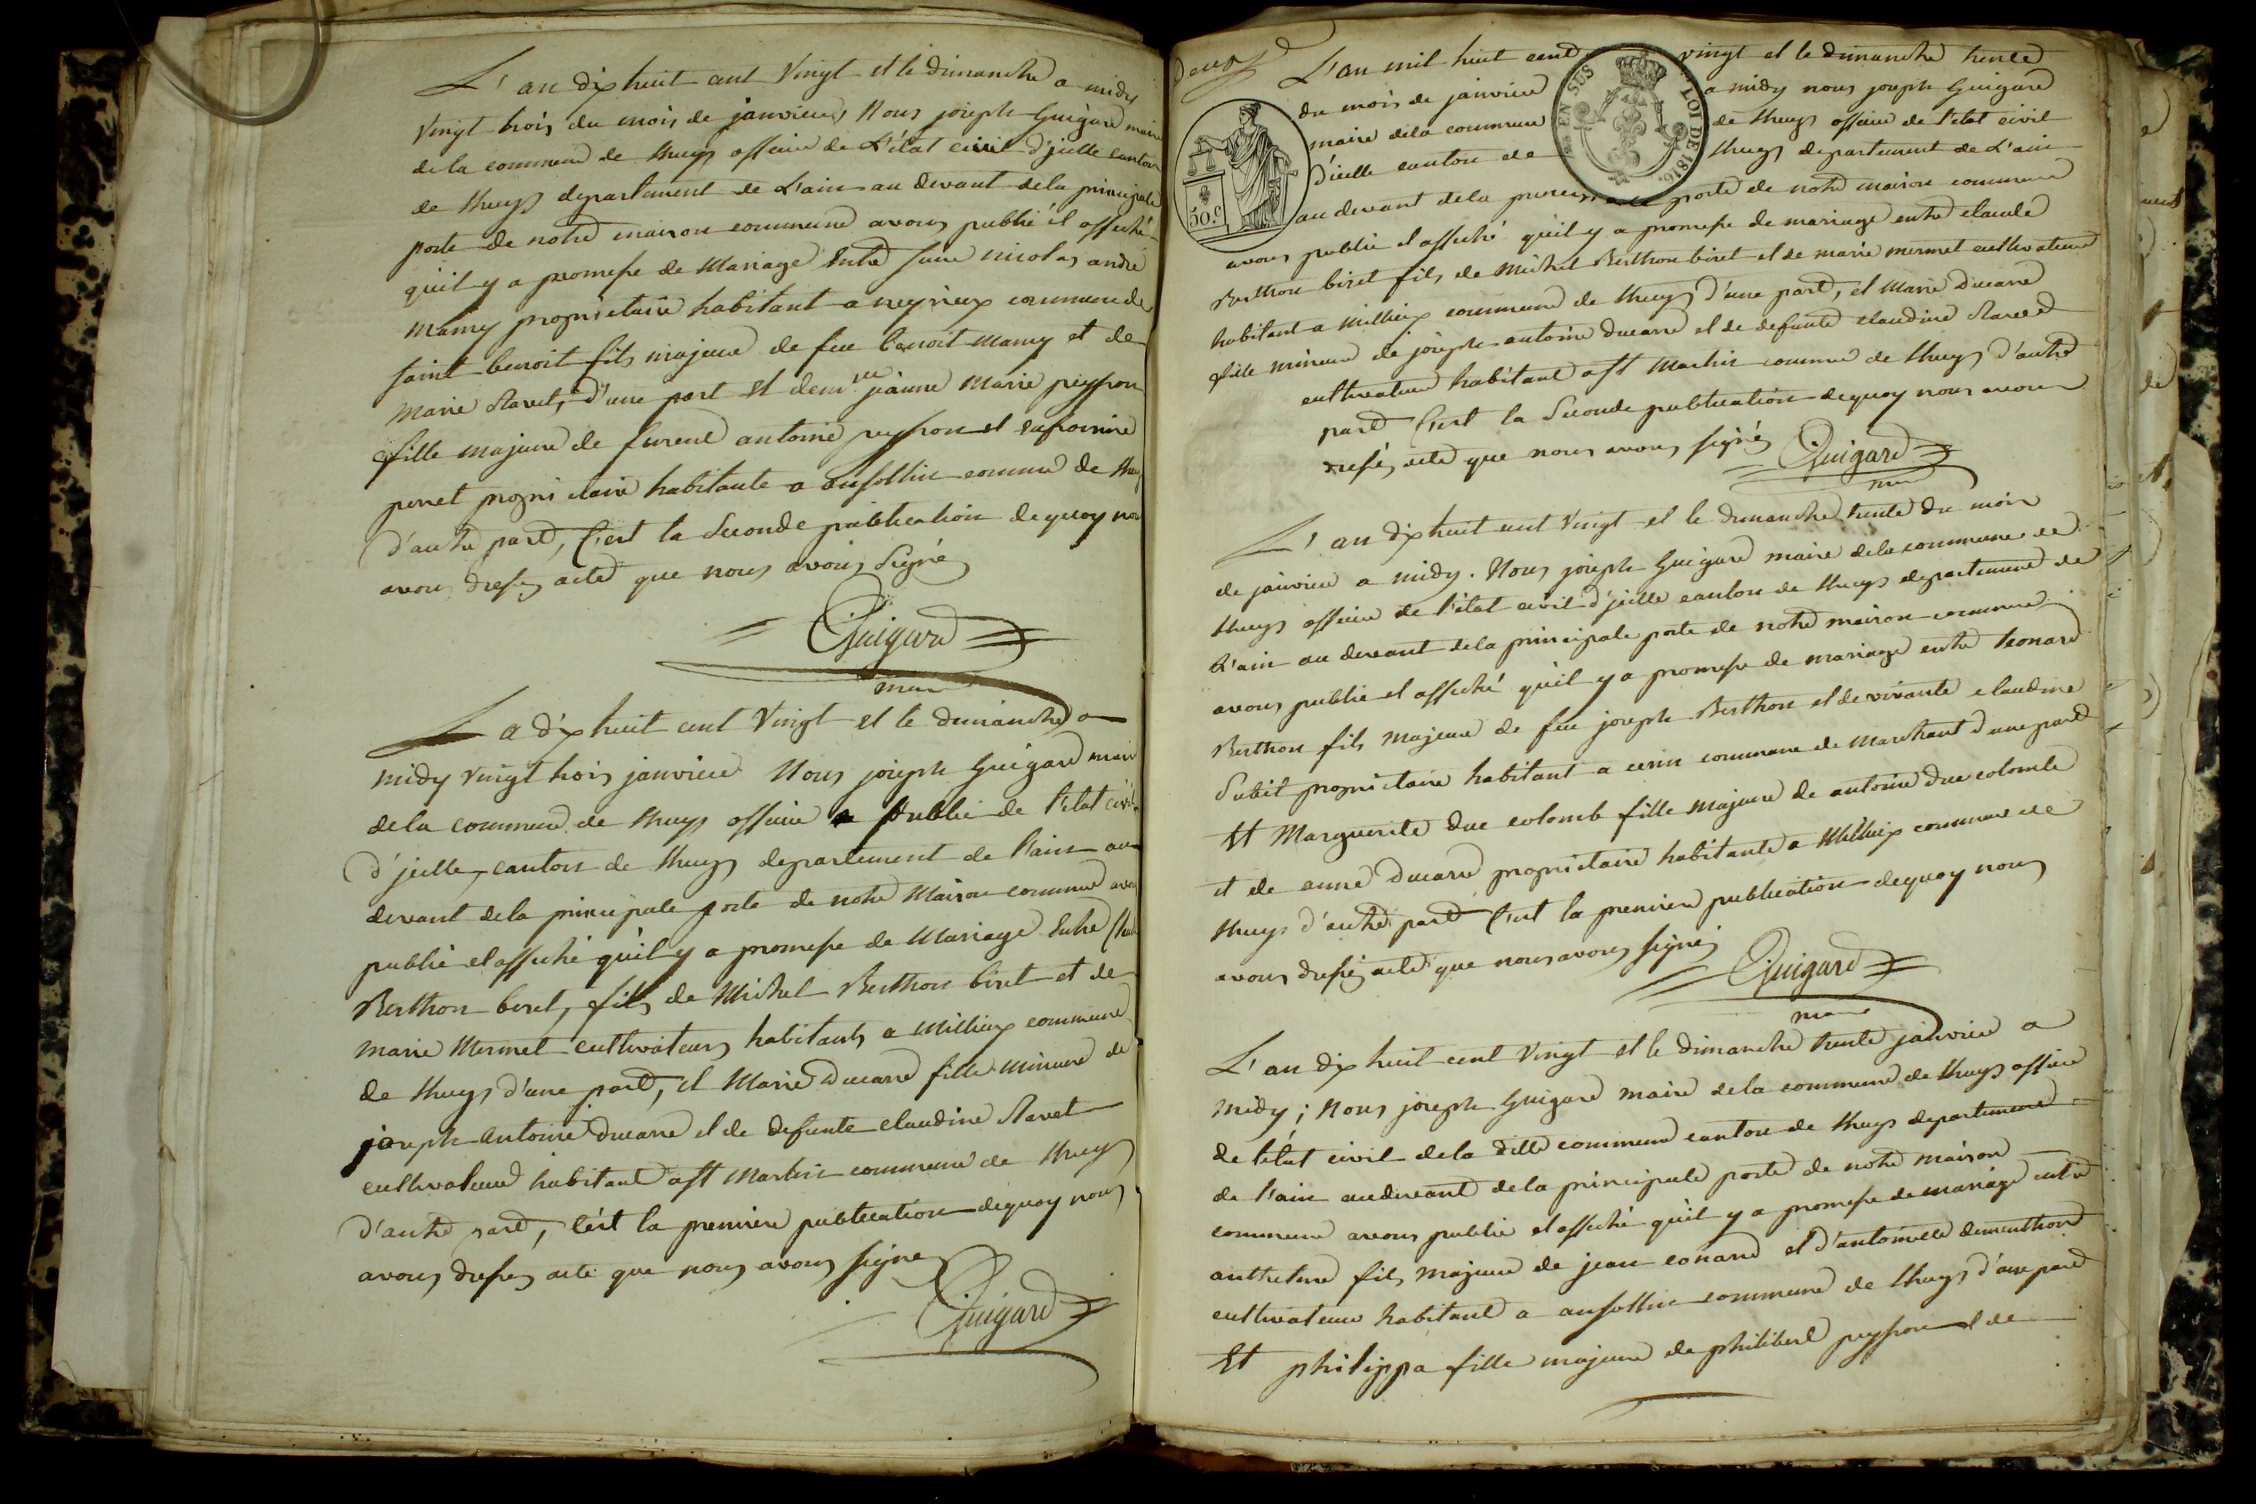 L'an dix huit cent vingt et le dimanche a midy
vingt trois du mois de janvier, Nous joseph Guigard maire
de la commune de Lhuys officier de L'état civil d'jcelle canton
de Lhuys departement de L'ain au devant de la principale
porte de notre maison commune avons publié et affiché
qu'il y a promesse de Mariage Entre nicolas andré
Mamy proprietaire habitant a neyrieux commune de
saint benoit fils majeur de feu benoit Mamy et de
Marie Ravet, d'une part Et jeanne Marie peysson
fille majeure de antoine peysson et
perret proprietaire habitante a ansollin commune de Lhuys
d'autre part, C'est la Seconde publication de quoy nous
avons dressé acte que nous avons Signé
Guigard
maire
L'a dix huit cent vingt et le dimanche a
midy vingt trois janvier Nous joseph Guigard maire
de la commune de Lhuys officier public de l'état civil
d'jcelle, canton de Lhuys departement de l'ain au
devant de la principale porte de notre Maison commune avons
publié et affiché qu'il y a promesse de Mariage Entre
Berthon biret, fils de Michel Berthon biret et de
Marie Mermet cultivateurs habitants a Millieux commune
de Lhuys d'une part, et Marie Ducarre fille Mineure de
joseph antoine Ducarre et de defunte claudine Ravet
cultivateur habitant a St Martin commune de Lhuys
d'autre part, C'est la premiere publication de quoy nous
avons dressé acte que nous avons signé
Guigard
deux
L'an mil huit cent vingt et le dimanche trente
du mois de janvier a midy nous joseph Guigard
maire de la commune de Lhuys officier de l'etat civil
d'icelle canton de Lhuys departement de L'ain
EN SUS
LOI DE 1816.
50.c
au devant de la porte de notre maison commune
avons publié et affiché qu'il y a promesse de mariage entre claude
Berthon biret fils de Michel Berthon biret et de marie mermet cultivateur
habitant a Millieux commune de Lhuys d'une part, et Marie Ducarre
fille mineure de joseph antoine ducarre et de defunte claudine Ravet
cultivateur habitant a St Martin commune de Lhuys d'autre
part C'est la Seconde publication de quoy nous avons
dressé acte que nous avons signé
Guigard
maire
L'an dix huit cent vingt et le dimanche trente du mois
de janvier a midy. Nous joseph Guigard maire de la commune de
Lhuys officier de l'état civil d'jcelle canton de Lhuys departement de
L'ain au devant de la principale porte de notre maison commune
avons publié et affiché qu'il y a promesse de mariage entre leonard
Berthon fils majeur de feu joseph Berthon et de vivante claudine
Subit proprietaire habitant a cerin commune de Marchant d'une part
Et Marguerite duc colomb fille majeure de antoine duc colomb
et de anne Ducarre proprietaire habitante a Millieux commune de
Lhuys d'autre part C'est la premiere publication de quoy nous
avons dressé acte que nous avons signé
Guigard
maire
L'an dix huit cent vingt et le dimanche trente janvier a
midy; Nous joseph Guigard maire de la commune de Lhuys officier
de l'état civil de la ditte commune canton de Lhuys departement
de l'ain au devant de la principale porte de notre maison
commune avons publié et affiché qu'il y a promesse de mariage entre
fils majeur de jean conard et d'antoinette dementhon
cultivateur habitant a ansollin commune de Lhuys d'une part
Et philippa fille majeure de philibert peysson et de